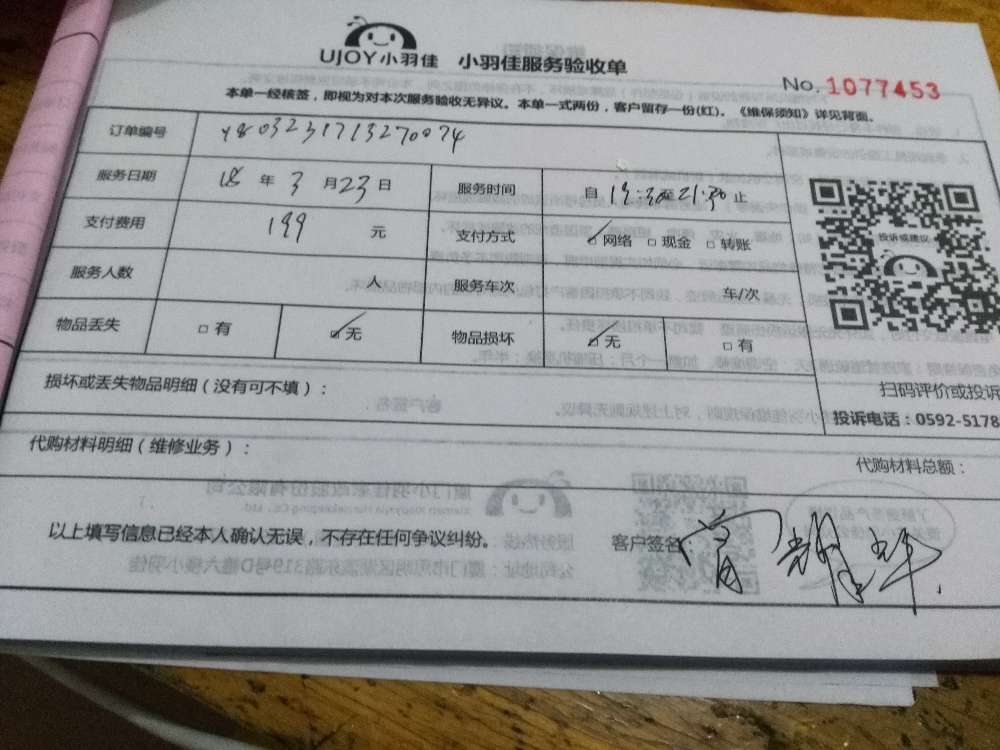 UJOY小羽佳 小羽佳服务验收单
No. 1077453
本单一经核签，即视为对本次服务验收无异议。本单一式两份，客户留存一份(红)。《维保须知》详见背面。
订单编号 Y803231713270074
服务日期 18 年 3 月 23 日 服务时间 自 19:30 至 21:30 止
支付费用 199 元 支付方式 ☑网络 □现金 □转账
服务人数 人 服务车次 车/次
物品丢失 □有 ☑无 物品损坏 ☑无 □有
投诉或建议
损坏或丢失物品明细（没有可不填）：
扫码评价或投诉
投诉电话：0592-5178
代购材料明细（维修业务）：
代购材料总额：
以上填写信息已经本人确认无误，不存在任何争议纠纷。
客户签名